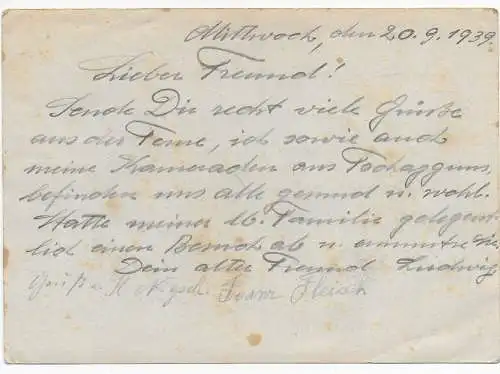 Mittwoch, den 20.9.1939.
Lieber Freund!
Sende Dir recht viele Grüße
aus der Ferne, ich sowie auch
meine Kameraden aus Tschagguns,
befinden uns alle gesund u. wohl.
Hatte meiner lb. Familie gelegent
lich einen Besuch ab u.
Dein alter Freund Ludwig
Franz Fleisch